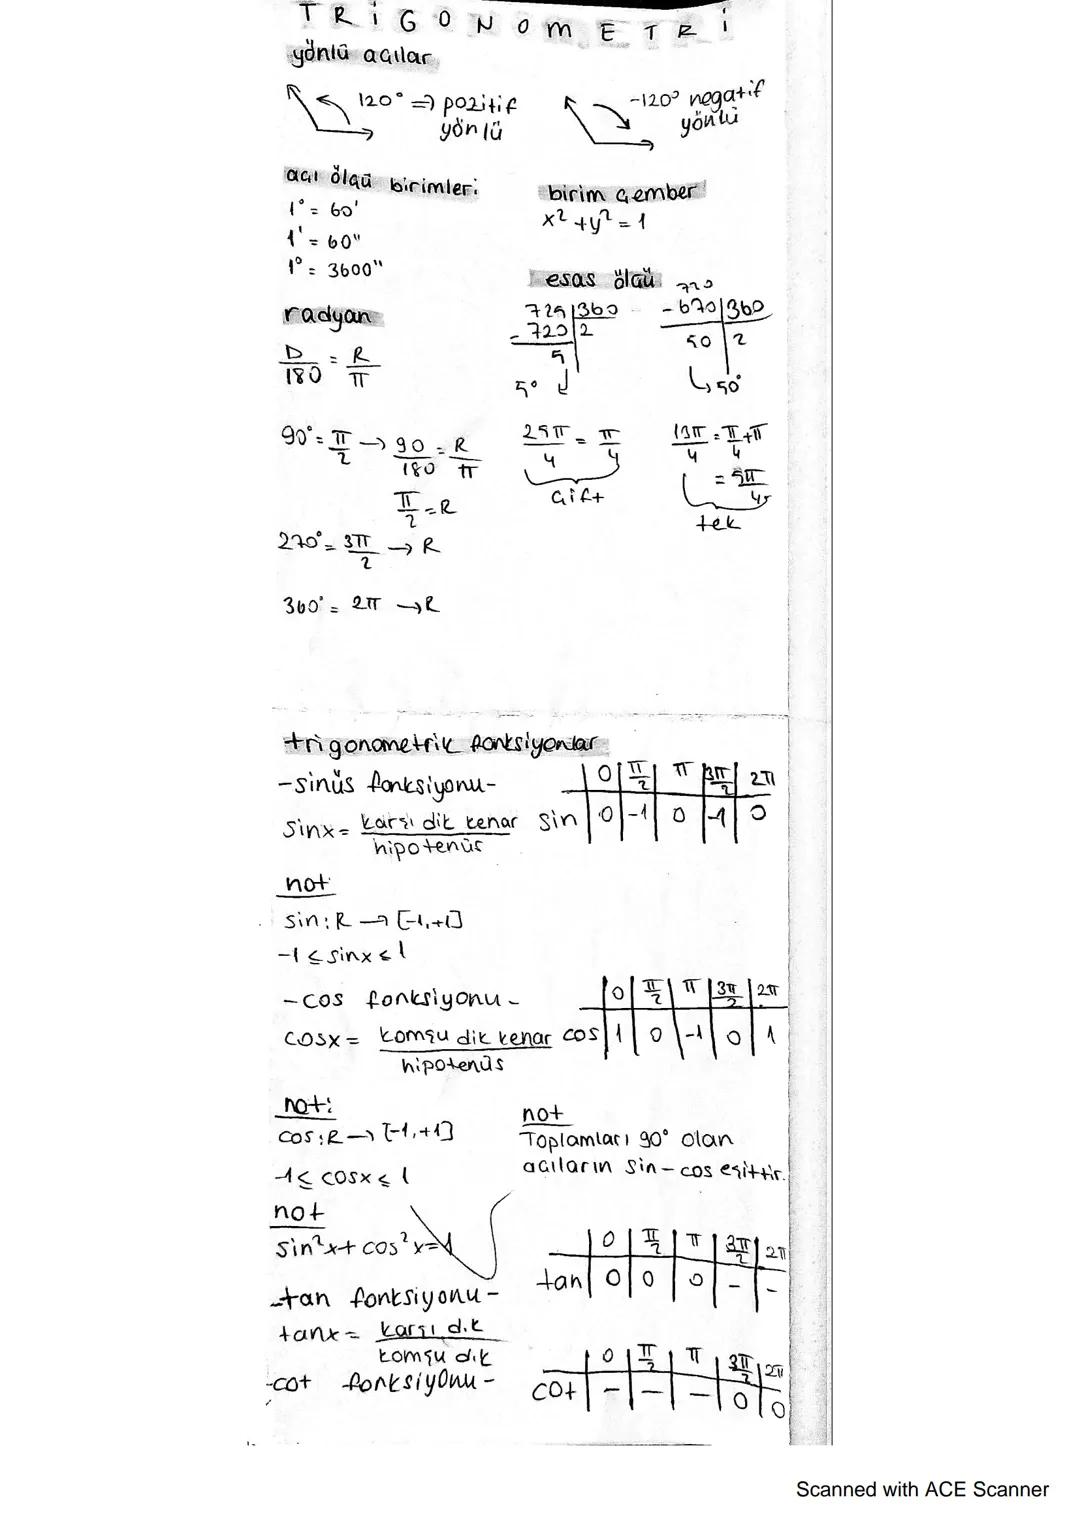 TRİGONOMETRİ
yönlü açılar
120° => pozitif yönlü
-120° negatif yönlü
açı ölçü birimleri:
1° = 60'
1' = 60"
1° = 3600"
birim çember
x² + y² = 1
esas ölçü
725 | 360
- 720 | 2
5
5°
720
- 670 | 360
50 | 2
↳ 50°
radyan
D/180 = R/π
90° = π/2 → 90/180 = R/π
π/2 = R
270° = 3π/2 → R
360° = 2π → R
25π/4 = π/4
çift
13π/4 = π/4 + π
= 5π/4
tek
trigonometrik fonksiyonlar
-sinüs fonksiyonu-
sinx = karşı dik kenar / hipotenüs
0 | π/2 | π | 3π/2 | 2π
sin | 0 | -1 | 0 | -1 | 0
not
sin: R → [-1,+1]
-1 ≤ sinx ≤ 1
-cos fonksiyonu-
cosx = komşu dik kenar / hipotenüs
0 | π/2 | π | 3π/2 | 2π
cos | 1 | 0 | -1 | 0 | 1
not:
cos: R → [-1,+1]
-1 ≤ cosx ≤ 1
not
Toplamları 90° olan
açıların sin-cos eşittir.
not
sin²x + cos²x = 1
-tan fonksiyonu-
tanx = karşı dik / komşu dik
0 | π/2 | π | 3π/2 | 2π
tan | 0 | 0 | 0 | - | -
-cot fonksiyonu-
0 | π/2 | π | 3π/2 | 2π
cot | - | - | - | 0 | 0
Scanned with ACE Scanner